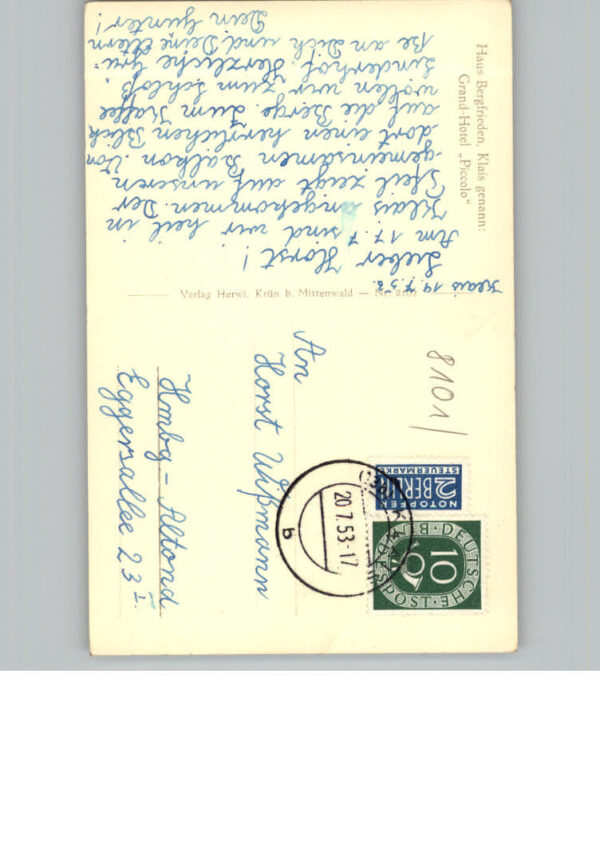 Haus Bergfrieden, Klais genannt:
Grand-Hotel „Piccolo"
Klais 19.7.53.
Lieber Horst!
Am 17.7 sind wir heil in
Klais angekommen. Der
Pfeil zeigt auf unseren
gemeinsamen Balkon. Von
dort einen herrlichen Blick
auf die Berge. Zum Kaffee
wollen wir zum Schloß
Linderhof. Herzliche Grü-
ße an Dich und Deine Eltern
Dein Gunter!
Verlag Herwi, Krün b. Mittenwald — Nr. 2102
8101/
NOTOPFER
2 BERLIN
STEUERMARKE
DEUTSCHE BUNDESPOST
10
20.7.53-17
b
An
Horst Wißmann
Hmbg - Altona
Eggersallee 23 I.